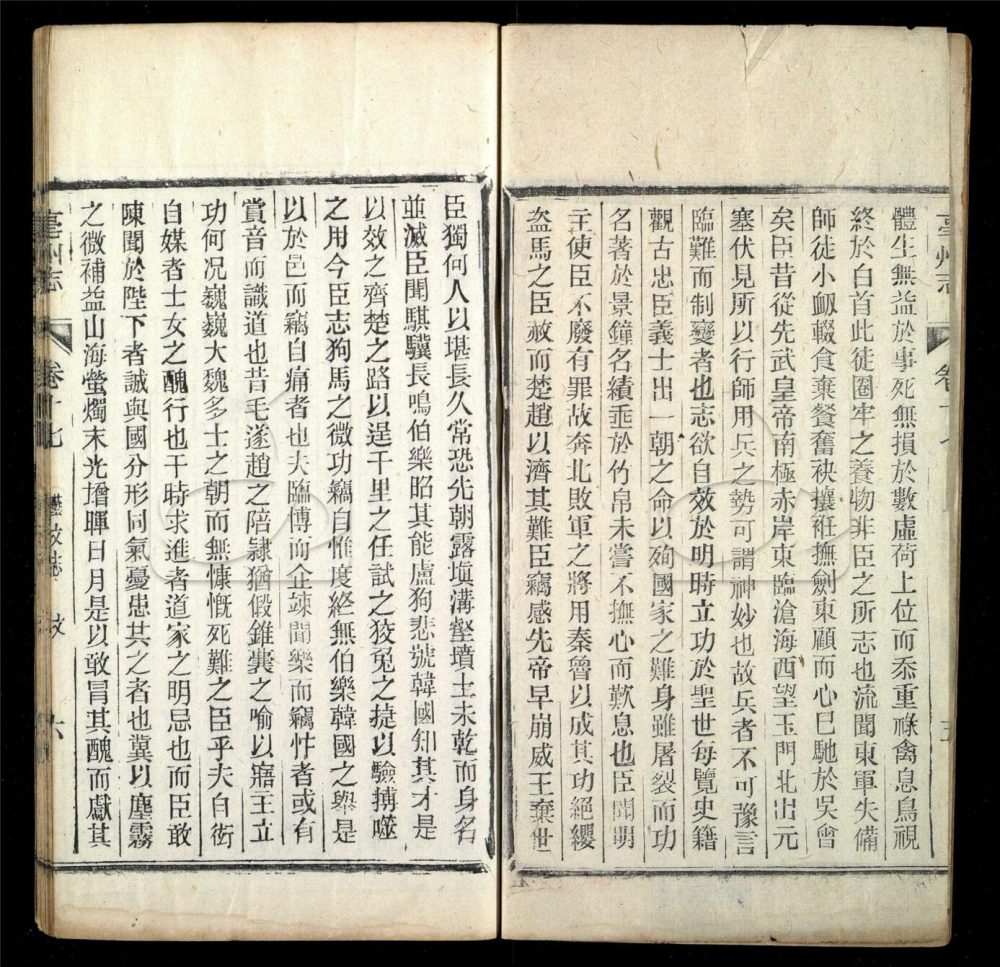 亳州志 卷十七 五
體生無益於事死無損於數虛荷上位而忝重祿禽息鳥視
終於白首此徒圈牢之養物非臣之所志也流聞東軍失備
師徒小衂輟食棄餐奮袂攘衽撫劍東顧而心巳馳於吳會
矣臣昔從先武皇帝南極赤岸東臨滄海西望玉門北出元
塞伏見所以行師用兵之勢可謂神妙也故兵者不可豫言
臨難而制變者也志欲自效於明時立功於聖世每覽史籍
觀古忠臣義士出一朝之命以殉國家之難身雖屠裂而功
名著於景鐘名績垂於竹帛未嘗不撫心而歎息也臣聞明
主使臣不廢有罪故奔北敗軍之將用秦魯以成其功絕纓
盜馬之臣赦而楚趙以濟其難臣竊感先帝早崩威王棄世
臣獨何人以堪長久常恐先朝露塡溝壑墳土未乾而身名
並滅臣聞騏驥長鳴伯樂昭其能盧狗悲號韓國知其才是
以效之齊楚之路以逞千里之任試之狡兔之捷以驗搏噬
之用今臣志狗馬之微功竊自惟度終無伯樂韓國之舉是
以於邑而竊自痛者也夫臨傅而企竦聞樂而竊忭者或有
賞音而識道也昔毛遂趙之陪隷猶假錐囊之喻以寤王立
功何况巍巍大魏多士之朝而無慷慨死難之臣乎夫自衒
自媒者士女之醜行也干時求進者道家之明忌也而臣敢
陳聞於陛下者誠與國分形同氣憂患共之者也冀以塵霧
之微補益山海螢燭末光增暉日月是以敢冒其醜而獻其
亳州志 卷十七 藝文志 文 六